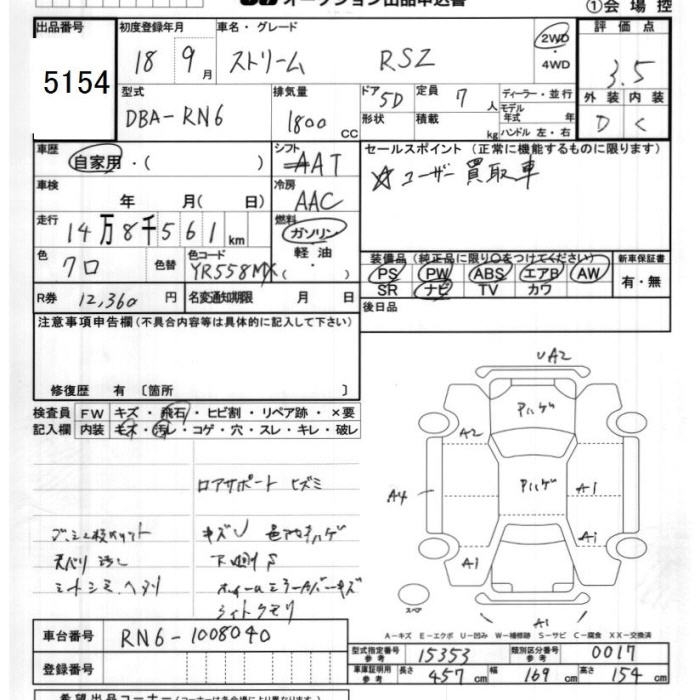 オークション出品申込書
①会場控
出品番号 5154
初度登録年月 18 9月
車名・グレード ストリーム RSZ
2WD ・ 4WD
評価点 3.5
外装 D 内装 C
型式 DBA-RN6
排気量 1800 CC
ドア 5D
形状
定員 7人
積載 kg
ディーラー・並行
モデル年式 年
ハンドル 左・右
車歴 自家用・( )
シフト AAT
車検 年 月( 日)
冷房 AAC
走行 14万8千561km
燃料 ガソリン 軽油
色 クロ 色替
色コード YR558MX
R券 12,360円
名変通知期限 月 日
セールスポイント (正常に機能するものに限ります)
☆ユーザー買取車
装備品(純正品に限り○をつけてください)
PS PW ABS エアB AW
SR ナビ TV カワ
新車保証書 有・無
後日品
注意事項申告欄(不具合内容等は具体的に記入して下さい)
修復歴 有 〔箇所 〕
検査員 FW キズ・飛石・ヒビ割・リペア跡・×要
記入欄 内装 キズ・汚レ・コゲ・穴・スレ・キレ・破レ
ロアサポート ヒズミ
キズU 色アセハゲ
下廻りS
UA2
Pハゲ
A2
Pハゲ
A4
A1
A1
A1
スペア
A1
A-キズ E-エクボ U-凹み W-補修跡 S-サビ C-腐食 XX-交換済
車台番号 RN6-1008040
型式指定番号 参考 15353
類別区分番号 参考 0017
登録番号
車庫証明用 参考 長さ 457cm 幅 169cm 高さ 154cm
希望出品コーナー